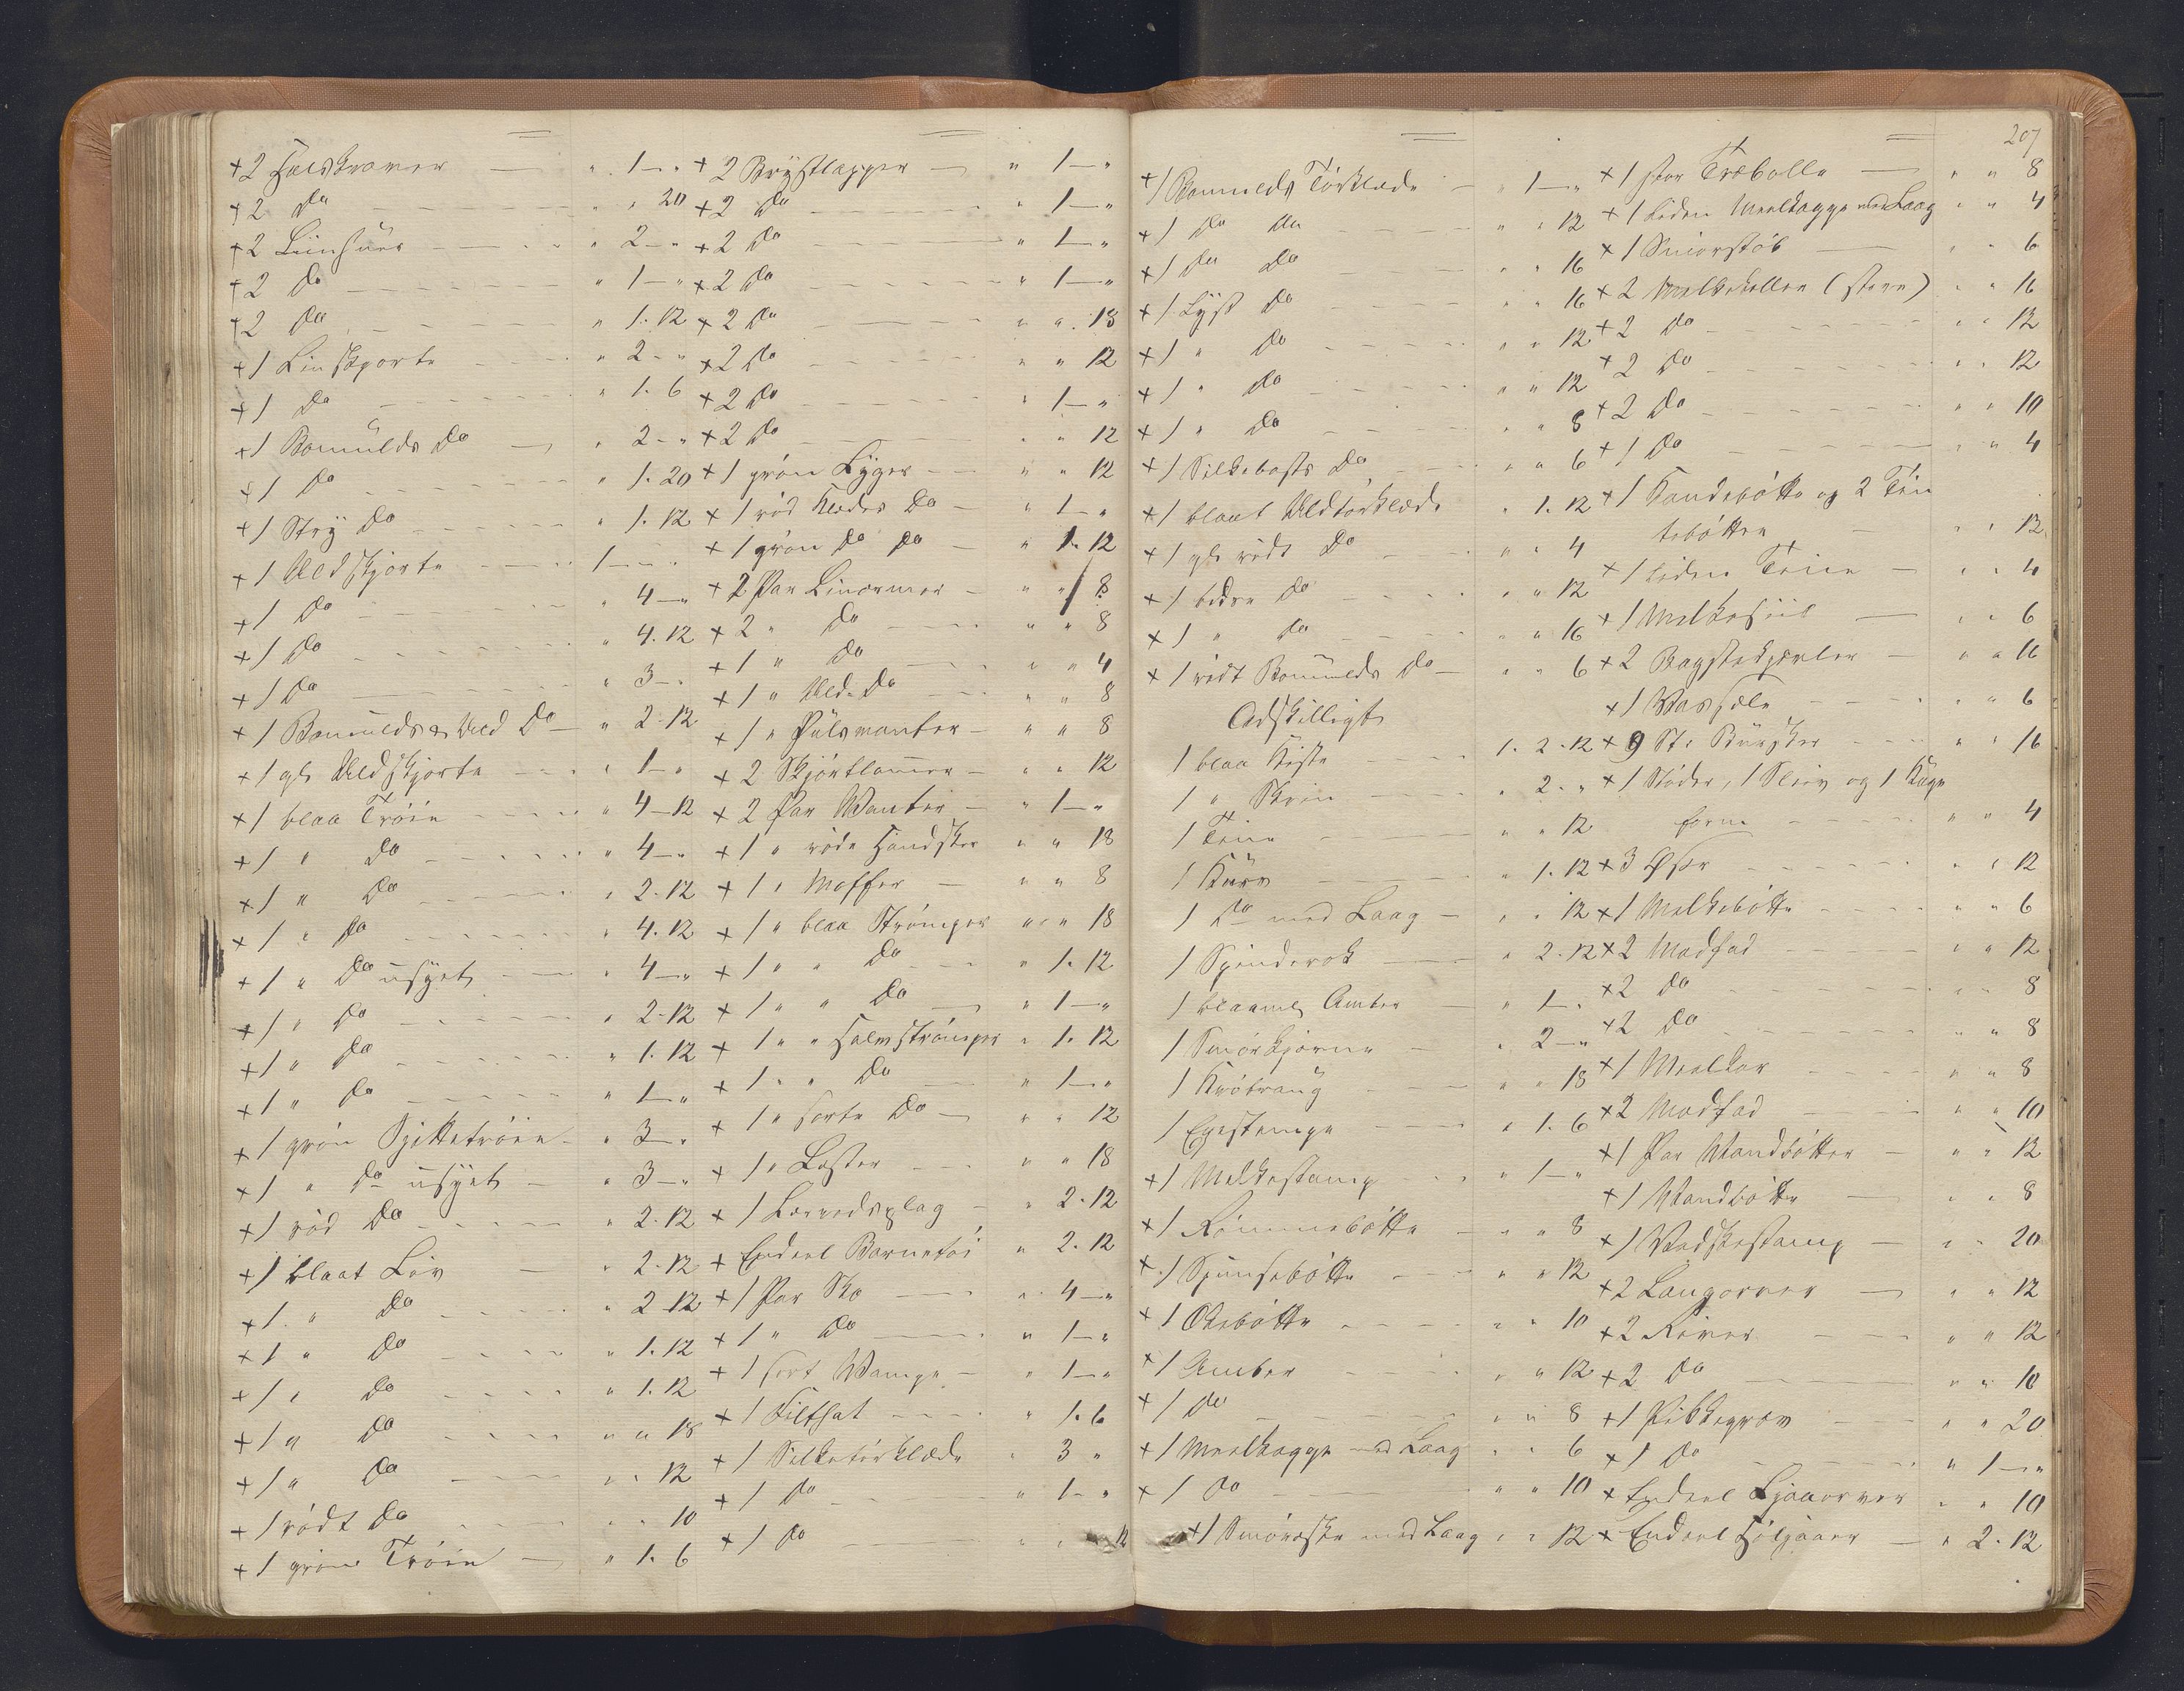 +2 Halskraver — " 1 — "
+2 Do " " 20
+2 Liinhuer " 2 — "
+2 Do " 1 — "
+2 Do " 1. 12
+1 Linskjorte " 2 - "
+1 Do " 1. 6
+1 Bomulds Do " 2 - "
+1 Do " 1. 20
+1 Stry Do " 1. 12
+1 Uldskjorte 1 — " "
+1 Do " 4 — "
+1 Do " 4. 12
+1 Do " 3 — "
+1 Bomulds & Uld Do " 2. 12
+1 gl. Uldskjorte " 1 - "
+1 blaa Trøie " 4 - 12
+1 " Do " 4 — "
+1 " Do " 2. 12
+1 " Do " 4. 12
+1 " Do usyet " 4 — "
+1 " Do " 2. 12
+1 " Do " 1. 12
+1 " Do " 1 — "
+1 grøn Spittetrøie " 3 — "
+1 " Do usyet " 3 — "
+1 rød Do " 2. 12
+1 blaat Liv " 2. 12
+1 " Do " 2 - 12
+1 " Do " 1. 12
+1 " Do " 1. 12
+1 " Do " " 18
+1 " Do " " 12
+1 rødt Do " " 10
+1 grøn Trøie " 1. 6
+2 Brystlapper " 1 — "
+2 Do " 1 — "
+2 Do " 1 — "
+2 Do " 1 — "
+2 Do " " 18
+2 Do " " 12
+2 Do " 1 — "
+2 Do " " 12
+1 grøn Lyger " " 12
+1 rød Klædes Do " 1 — "
+1 grøn Do Do " 1. 12
+2 Par Linærmer " " 8
+2 " Do " " 8
+1 " Do " " 4
+1 " Uld. Do " " 8
+1 " Pulsvanter " " 8
+2 Skjørtlommer " " 12
+2 Par Wanter " 1 — "
+1 " røde Handsker " " 18
+1 " Moffer " " 8
+1 " blaa Strømper " " 18
+1 " " Do " 1. 12
+1 " " Do " 1 — "
+1 " " Halvstrømper " 1. 12
+1 " " Do " 1 — "
+1 " sorte Do " " 12
+1 " Læster " " 18
+1 Lærredsplag " 2. 12
+ Endeel Barnetøi " 2. 12
+1 Par Sko " 4 — "
+1 " Do " 1 — "
+1 sort Wampe " 1 — "
+1 Filthat " 1. 6
+1 Silketørklæde " 3 "
+1 Do " 1 - "
+1 Do " " 12
+1 Bomulds Tørklæde " 1 — "
+1 Do Do " " 12
+1 Do Do " " 16
+1 Lyst Do " " 16
+1 " Do " " 12
+1 " Do " " 12
+1 " Do " " 8
+1 Silkebasts Do " " 6
+1 blaat Uldtørklæde " 1. 12
+1 gl. rødt Do " " 4
+1 bedre Do " " 12
+1 " Do " " 16
+1 rødt Bomulds Do " " 6
Adskilligt
1 blaa Kiste 1. 2. 12
1 " Skrin " 2. "
1 Teine " " 12
1 Kurv " 1. 12
1 Do med Laag " " 12
1 Spinderok " 2. 12
1 blaamlt Ambar " 1 - "
1 Smørkjerne " 2 — "
1 " " 18
1 " 1. 6
+1 Melkestamp " 1 — "
+1 Rømmebøtte " " 8
+1 " " 12
+1 " " 10
+1 Ambar " " 12
+1 Do " " 8
+1 Meelkagge med Laag " " 6
+1 Do " " 10
+1 Smøræske med Laag " " 12
207
+1 stor Træbolle " " 8
+1 liden Meelkagge med Laag " " 4
+1 " " 6
+2 Melkekoller (store) " " 16
+2 Do " " 12
+2 Do " " 12
+2 Do " " 10
+1 Do " " 4
+1 Kandebøtte og 2 Tin
tebøtter " " 12
+1 liden Teine " " 4
+1 Melkesiil " " 6
+2 Bagstekjevler " " 16
+1 " " 6
+9 St. " " 16
+1 Støder, 1 Sleiv og 1 Kage
form " " 4
+3 Øser " " 12
+1 Melkebøtte " " 6
+2 Madfad " " 12
+2 Do " " 8
+2 Do " " 8
+1 Meelkar " " 8
+2 Madfad " " 10
+1 Par Wandbøtter " " 12
+1 Wandbøtte " " 8
+1 Vadskestamp " " 20
+2 Langorver " " 12
+2 River " " 12
+2 Do " " 10
+1 " " 20
+1 Do " 1 — "
+ Endeel Ljaaorver " " 10
+ Endeel " 2. 12